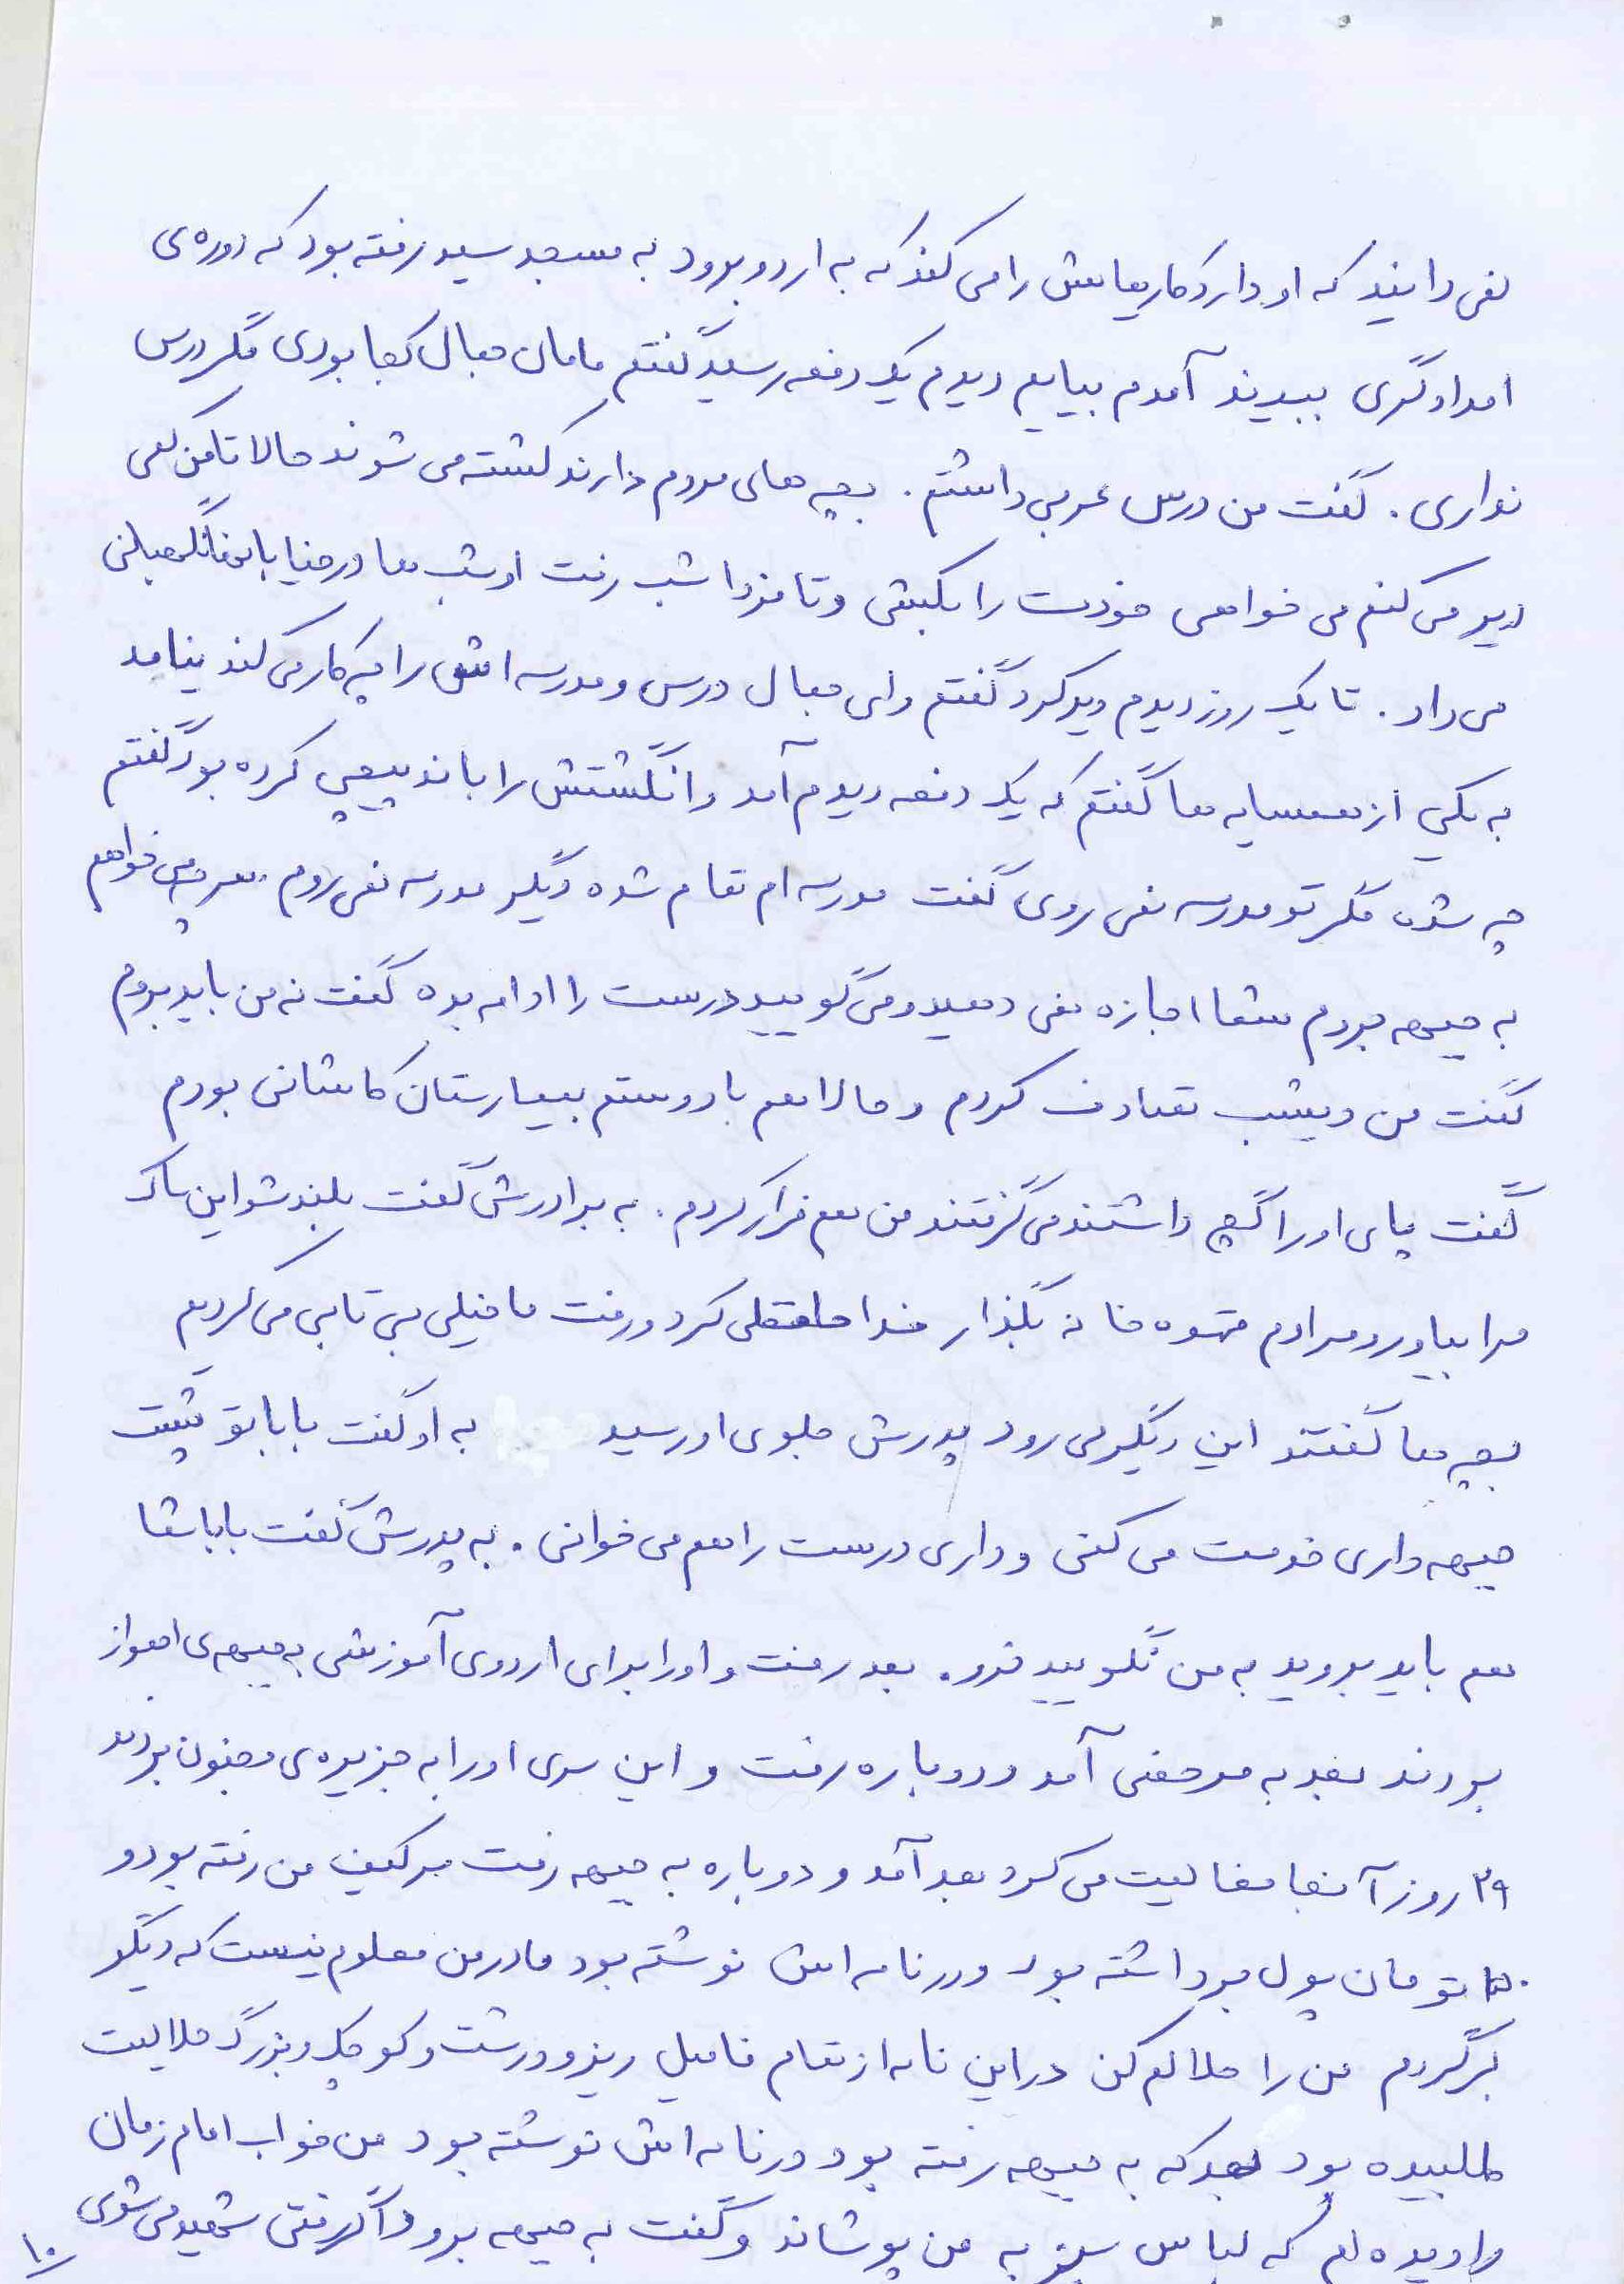 نمی دانید که او دارد کارهایش را می کند که به اردو برود به مسجد سید رفته بود که دوره‌ی
امدادگری ببیند آمدم بیایم دیدم یک دفعه رسید گفتم مامان جمال کجا بودی مگر درس
نداری. گفت من درس عربی داشتم. بچه های مردم دارند کشته می شوند حالا تا من کمی
دیر می کنم می خواهی خودت را بکشی و تا فردا شب رفت او شب ها در خیابانها نگهبانی
می داد. تا یک روز دیدم دیر کرد گفتم وای جمال درس و مدرسه اش را چه کار می کند نیامد
به یکی از همسایه ها گفتم که یک دفعه دیدم آمد و انگشتش را باند پیچی کرده بود گفتم
چه شده مگر تو مدرسه نمی روی گفت مدرسه ام تمام شده دیگر مدرسه نمی روم. هر چه می خواهم
به جبهه بروم شما اجازه نمی دهید و می گویید درست را ادامه بده گفت نه من باید بروم
گفت من دیشب تصادف کردم و حالا هم با دوستم بیمارستان کاشانی بودم
گفت پای او را گچ داشتند می گرفتند من هم فرار کردم. به برادرش گفت بلند شو این ساک
مرا بیاور و مرا دم قهوه خانه بگذار خداحافظی کرد و رفت ما خیلی بی تابی می کردیم
بچه ها گفتند این دیگر می رود پدرش جلوی او رسید به او گفت بابا تو پشت
جبهه داری خدمت می کنی و داری درست را هم می خوانی. به پدرش گفت بابا شما
هم باید بروید به من نگویید نرو. بعد رفت و او را برای اردوی آموزشی به جبهه‌ی اهواز
بردند بعد به مرخصی آمد و دوباره رفت و این سری او را به جزیره‌ی مجنون بردند
۲۹ روز آنجا فعالیت می کرد بعد آمد و دوباره به جبهه رفت سر کیف من رفته بود و
تومان پول برداشته بود و در نامه اش نوشته بود مادر من معلوم نیست که دیگر
برگردم من را حلالم کن در این نامه از تمام فامیل ریز و درشت و کوچک و بزرگ حلالیت
طلبیده بود بعد که به جبهه رفته بود در نامه اش نوشته بود من خواب امام زمان
را دیده ام که لباس سبز به من پوشاند و گفت به جبهه برو و اگر رفتی شهید می شوی
۱۰